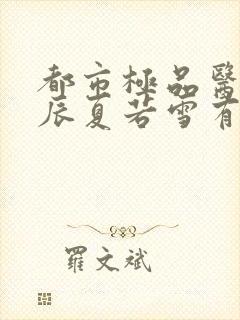 都市極品醫
辰夏若雪有
羅文斌